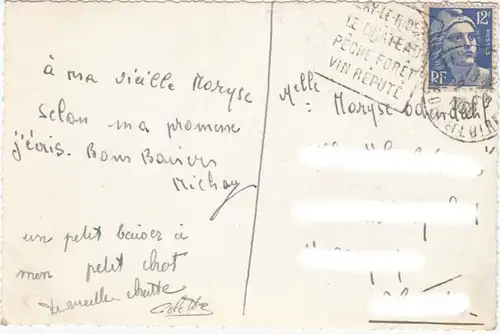 à ma vieille Maryse
selon ma promesse
j'écris. Bons Baisers
Michou
un petit baiser à
mon petit chat
ta vieille chatte
Colette
LE CHÂTEAU
PÊCHE FORÊT
VIN RÉPUTÉ
12F
POSTES
RF
Melle
Maryse